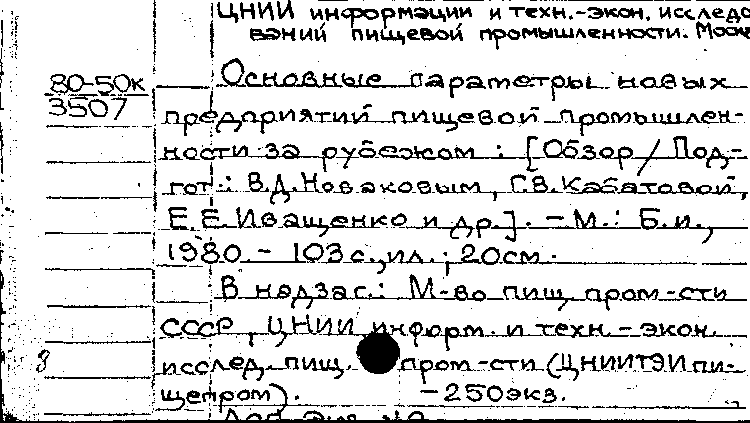 ЦНИИ информации и техн.-экон. исследо
ваний пищевой промышленности. Моск
80-50к
3507
Основные параметры новых
предприятий пищевой промышлен-
ности за рубежом : [Обзор / Под-
гот.: В.Д. Новаковым, Г.В. Кабатовой,
Е.Е. Иващенко и др.]. – М.: Б.и.,
1980. – 103 с., ил. ; 20 см.
В надзаг.: М-во пищ. пром-сти
СССР, ЦНИИ информ. и техн.-экон.
исслед. пищ. пром-сти (ЦНИИТЭИпи-
щепром). – 250 экз.
8